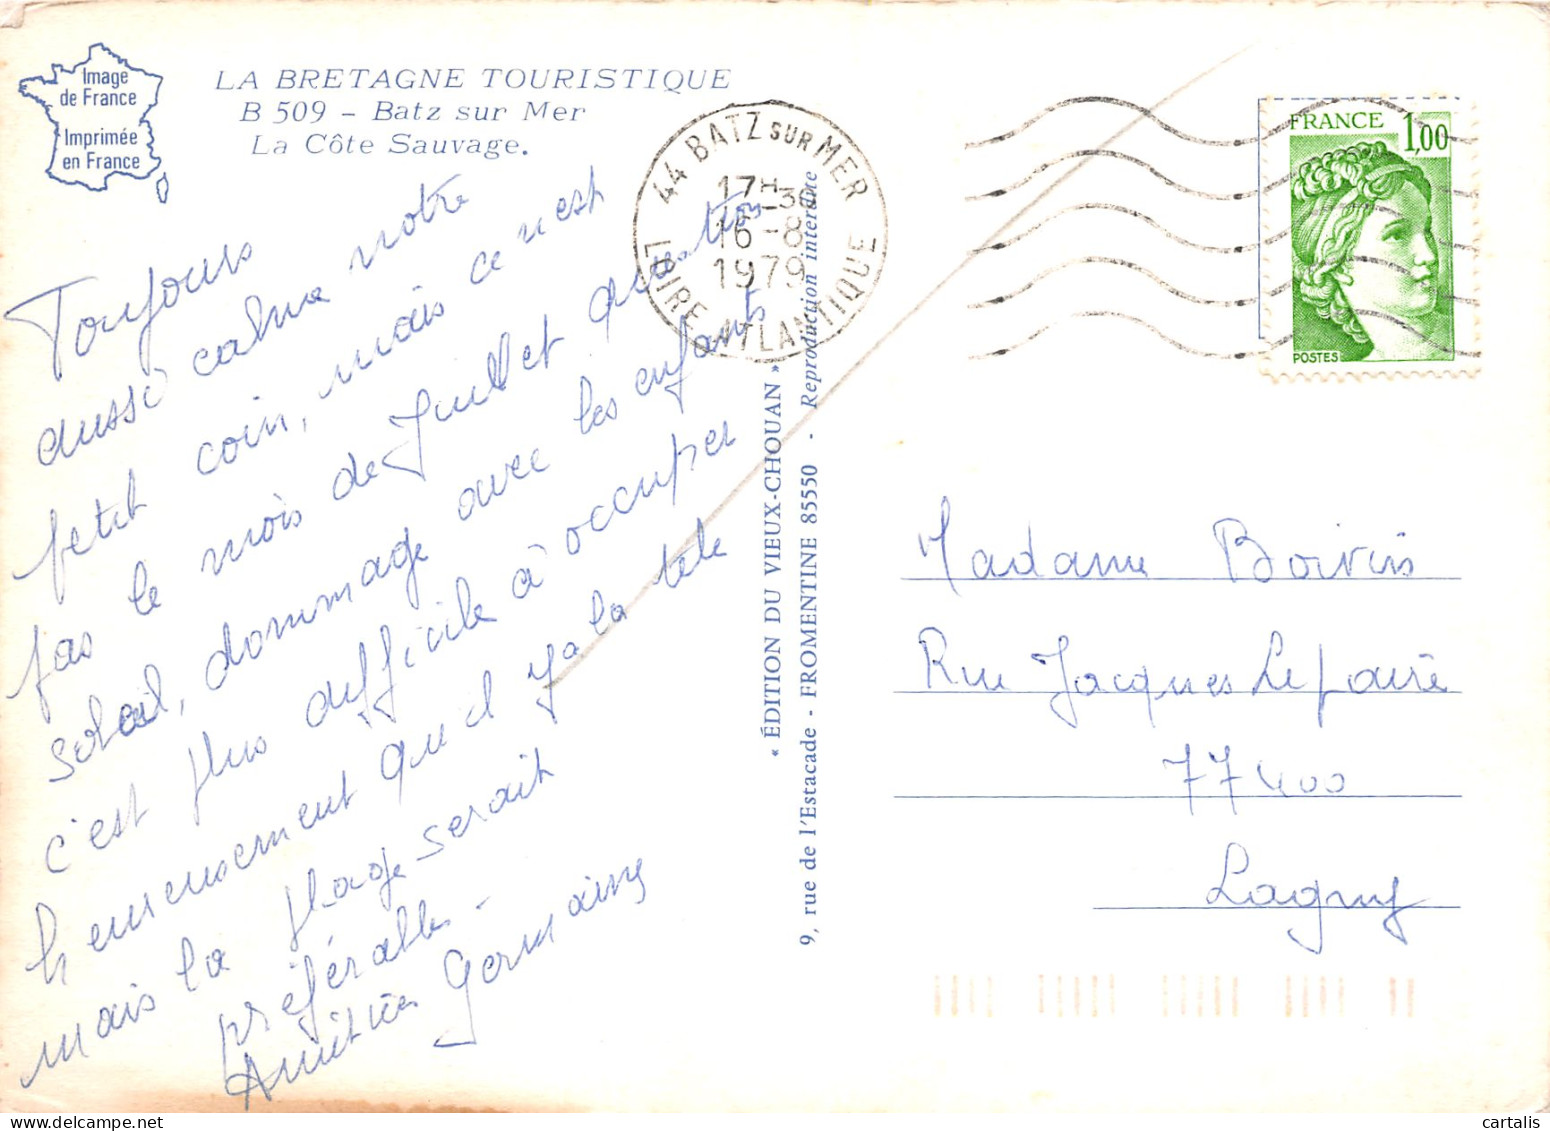 Image
de France
Imprimée
en France
LA BRETAGNE TOURISTIQUE
B 509 - Batz sur Mer
La Côte Sauvage.
Toujours
aussi calme notre
petit coin, mais ce n'est
pas le mois de Juillet question
soleil, dommage avec les enfants
c'est plus difficile à occuper
heureusement qu'il y a la tele
mais la plage serait
préférable -
Amitiés Germaine
44 BATZ SUR MER
17H-30
16-8
1979
LOIRE ATLANTIQUE
« ÉDITION DU VIEUX-CHOUAN »
9, rue de l'Estacade - FROMENTINE 85550 - Reproduction interdite
FRANCE 1,00
POSTES
Madame Boivin
Rue Jacques Le paire
77400
Lagny
cartalis